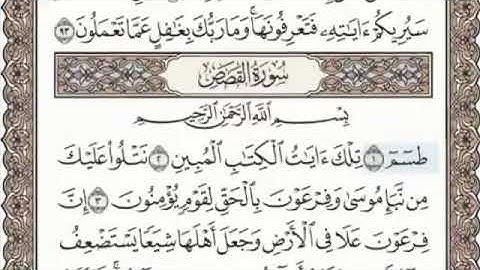 سَيُرِيكُمْ ءَايَٰتِهِۦ فَتَعْرِفُونَهَا ۚ وَمَا رَبُّكَ بِغَٰفِلٍ عَمَّا تَعْمَلُونَ ٩٣
سُورَةُ القَصَصِ
بِسْمِ ٱللَّهِ ٱلرَّحْمَٰنِ ٱلرَّحِيمِ
طسٓمٓ ١ تِلْكَ ءَايَٰتُ ٱلْكِتَٰبِ ٱلْمُبِينِ ٢ نَتْلُوا۟ عَلَيْكَ
مِن نَّبَإِ مُوسَىٰ وَفِرْعَوْنَ بِٱلْحَقِّ لِقَوْمٍ يُؤْمِنُونَ ٣ إِنَّ
فِرْعَوْنَ عَلَا فِى ٱلْأَرْضِ وَجَعَلَ أَهْلَهَا شِيَعًا يَسْتَضْعِفُ